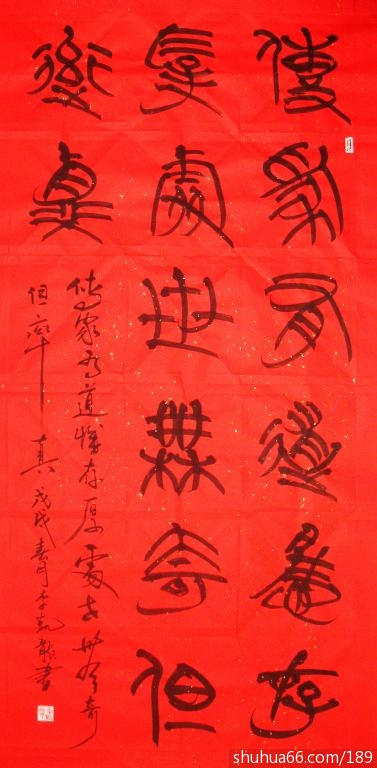 傳家有道惟存
厚處世無奇但
率真
傳家有道惟存厚處世無奇
但率真 戊戌春月李凱書
shuhua66.com/189